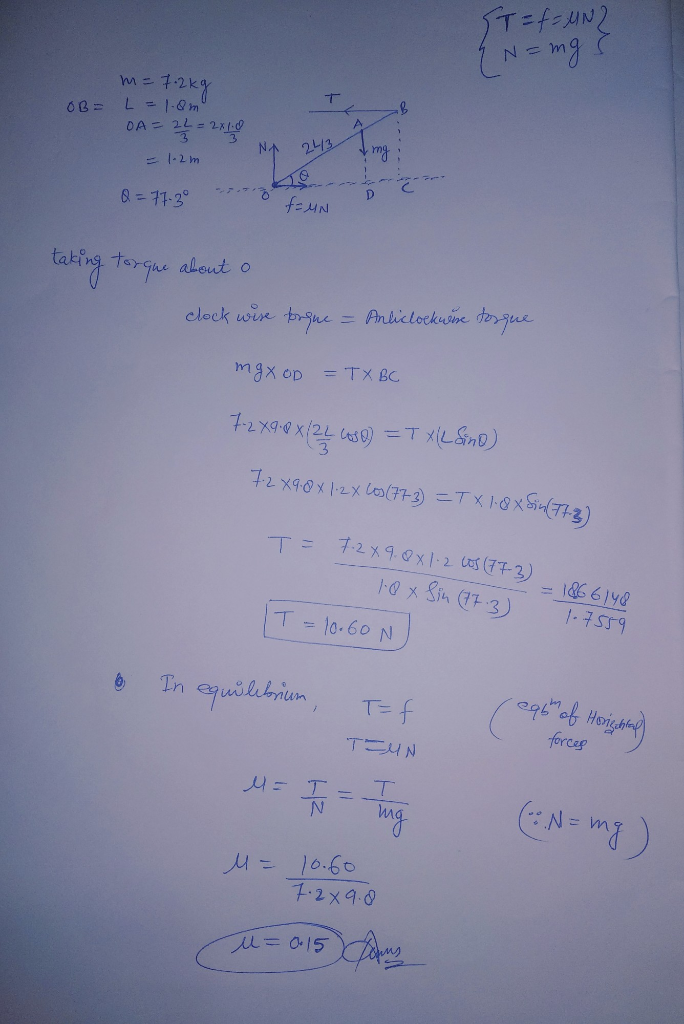 {T = f = μN}
{N = mg}
m = 7.2kg
OB = L = 1.8m
OA = 2L/3 = 2×1.8/3
= 1.2m
θ = 77.3°
T
B
A
N
2L/3
mg
θ
O
D
C
f=μN
taking torque about o
clock wise torque = Anticlockwise torque
mg × OD = T × BC
7.2 × 9.8 × (2L/3 cosθ) = T × (L Sinθ)
7.2 × 9.8 × 1.2 × cos(77.3) = T × 1.8 × Sin(77.3)
T = 7.2 × 9.8 × 1.2 cos(77.3) / 1.8 × Sin(77.3) = 18.66148 / 1.7559
T = 10.60 N
In equilibrium, T = f (eqbm of Horizontal forces)
T = μN
μ = T/N = T/mg (∵ N = mg)
μ = 10.60 / 7.2 × 9.8
μ = 0.15 Ans